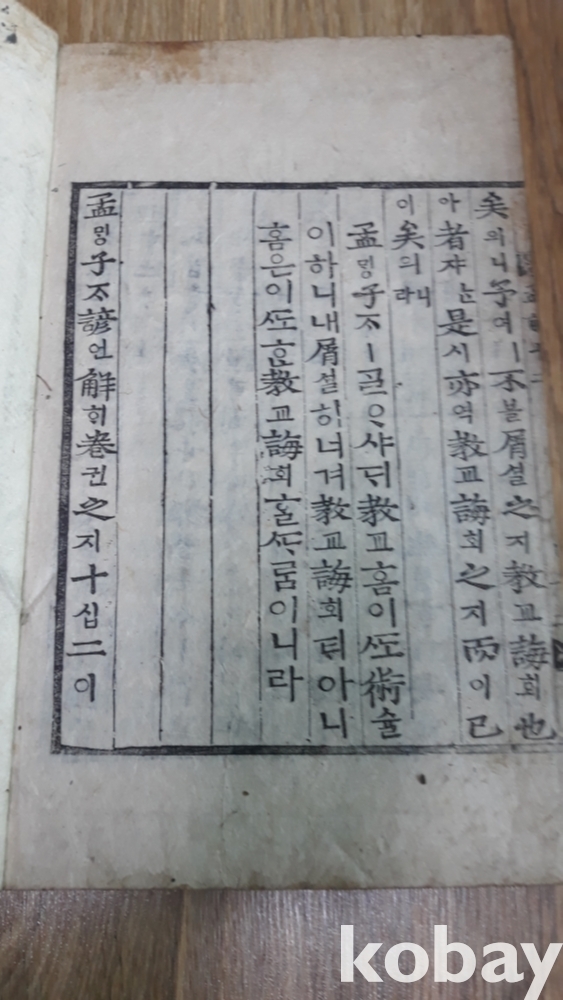 矣의니予여ㅣ不블屑셜之지敎교誨회也
아者쟈ᄂᆞᆫ是시亦역敎교誨회之지而이已
이矣의니라
孟ᄆᆡᆼ子ᄌᆞㅣᄀᆞᆯᄋᆞ샤ᄃᆡ敎교홈이ᄯᅩ術슐
이하니내屑셜히너겨敎교誨회티아니
홈은이ᄯᅩᄒᆞᆫ敎교誨회ᄒᆞᆯᄯᆞᄅᆞᆷ이니라
孟ᄆᆡᆼ子ᄌᆞ諺언解ᄒᆡ卷권之지十십二이
kobay